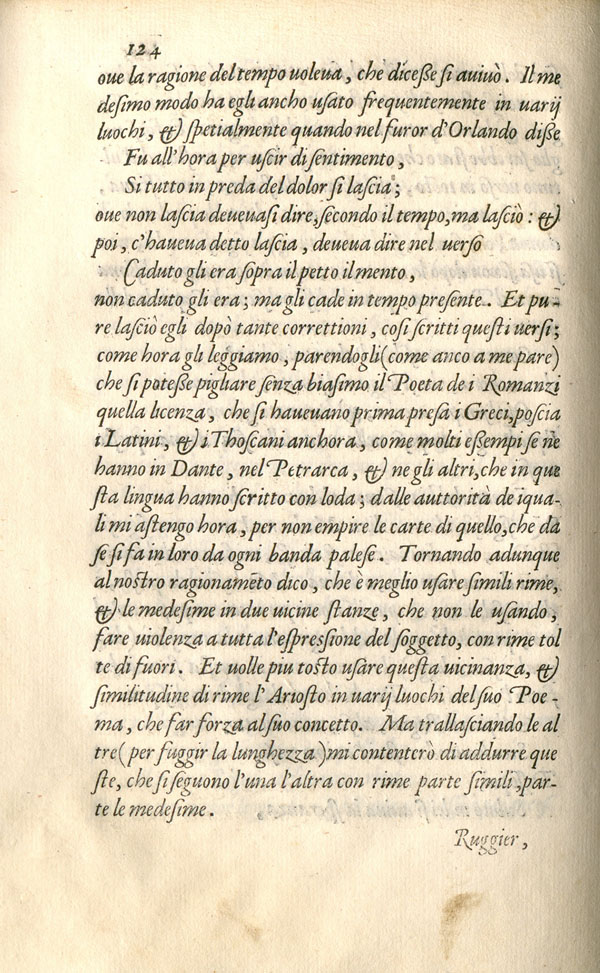 124
oue la ragione del tempo uoleua, che diceſſe ſi auiuò. Il me
deſimo modo ha egli ancho uſato frequentemente in uarij
luochi, & ſpetialmente quando nel furor d'Orlando diſſe
Fu all'hora per uſcir di ſentimento,
Si tutto in preda del dolor ſi laſcia;
oue non laſcia deueuaſi dire, ſecondo il tempo, ma laſciò: &
poi, c'haueua detto laſcia, deueua dire nel uerſo
Caduto gli era ſopra il petto il mento,
non caduto gli era; ma gli cade in tempo preſente. Et pu-
re laſciò egli dopò tante correttioni, coſi ſcritti queſti uerſi;
come hora gli leggiamo, parendogli (come anco a me pare)
che ſi poteſſe pigliare ſenza biaſimo il Poeta de i Romanzi
quella licenza, che ſi haueuano prima preſa i Greci, poſcia
i Latini, & i Thoſcani anchora, come molti eſſempi ſe ne
hanno in Dante, nel Petrarca, & ne gli altri, che in que
ſta lingua hanno ſcritto con loda; dalle auttorità de i qua-
li mi aſtengo hora, per non empire le carte di quello, che da
ſe ſi fa in loro da ogni banda paleſe. Tornando adunque
al noſtro ragionamẽto dico, che è meglio uſare ſimili rime,
& le medeſime in due uicine ſtanze, che non le uſando,
fare uiolenza a tutta l'eſpreſſione del ſoggetto, con rime tol
te di fuori. Et uolle piu toſto uſare queſta uicinanza, &
ſimilitudine di rime l'Arioſto in uarij luochi del ſuo Poe-
ma, che far forza al ſuo concetto. Ma trallaſciando le al
tre (per fuggir la lunghezza) mi contenterò di addurre que
ſte, che ſi ſeguono l'una l'altra con rime parte ſimili, par-
te le medeſime.
Ruggier,